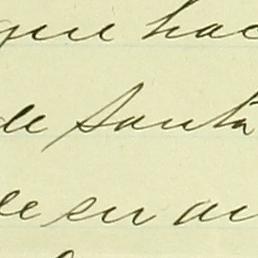 que hac
de Santa
de su au